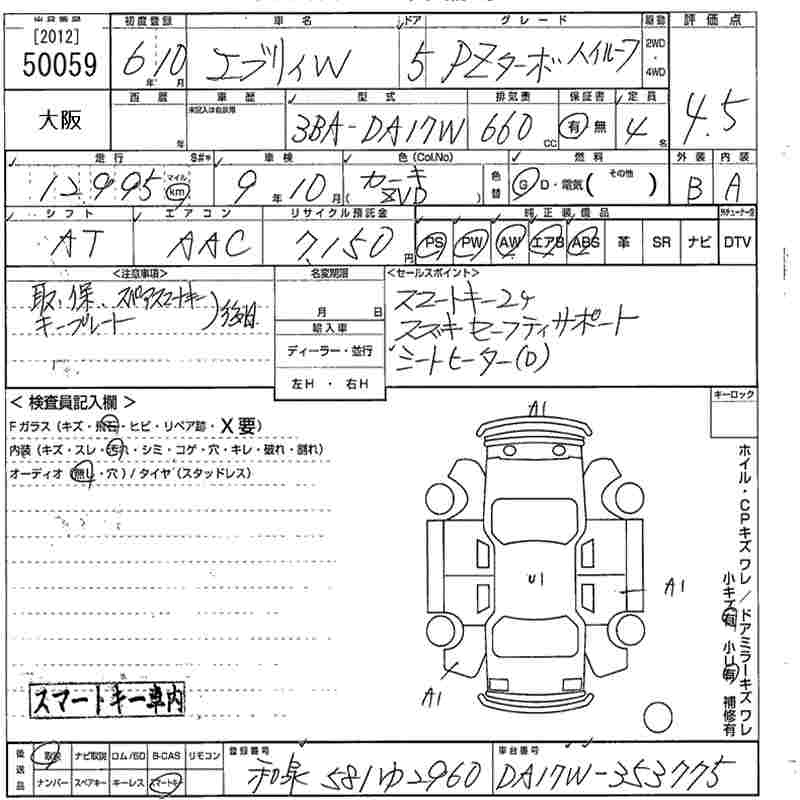 [2012]
50059
大阪
初度登録 車名 ドア グレード 駆動 評価点
6年 10月 エブリィW 5 PZターボ ハイルーフ 2WD・4WD 4.5
西暦 車歴 型式 排気量 保証書 定員
年 未記入は自家用 3BA-DA17W 660cc 有 無 4名
走行 S#* 車検 色(Col.No) 色替 燃料 外装 内装
12995 マイル km 9年 10月 ( ZVD ) G・D・電気( その他 ) B A
シフト エアコン リサイクル預託金 純正装備品
AT AAC 7,150円 PS PW AW エアB ABS 革 SR ナビ DTV
<注意事項> 名変期限 <セールスポイント>
取、保、スペアスマートキー
キープレート )後日
月 日
輸入車
ディーラー・並行
左H・右H
スマートキー2ケ
スズキセーフティサポート
シートヒーター(D)
<検査員記入欄>
Fガラス(キズ・飛石・ヒビ・リペア跡・X要)
内装(キズ・スレ・汚れ・シミ・コゲ・穴・キレ・破れ・割れ)
オーディオ(無し・穴)/タイヤ(スタッドレス)
キーロック
A1
U1
A1
A1
ホイル・CPキズ ワレ/ドアミラーキズ ワレ
小キズ有 小U有 補修有
スマートキー車内
後送品 取説 ナビ取説 ロム/SD B-CAS リモコン
ナンバー スペアキー キーレス スマートキー
登録番号 車台番号
和泉 581ゆ2960 DA17W-353775